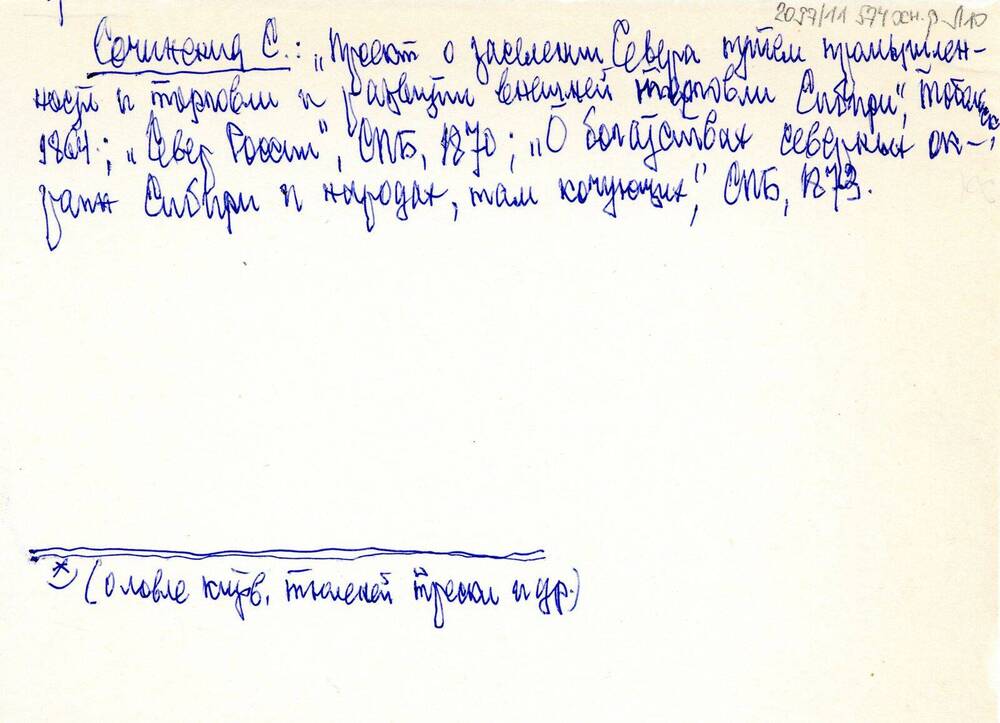 2097/11 574 осн.ф Л10
Сочинения С.: „Проект о заселении Севера путем промышлен-
ности и торговли и развитии внешней торговли Сибири", Тобольск,
1864.; „Север России", СПБ, 1870; „О богатствах северных ок-
раин Сибири и народах, там кочующих", СПБ, 1873.
*) (О ловле китов, тюленей трески и др.)